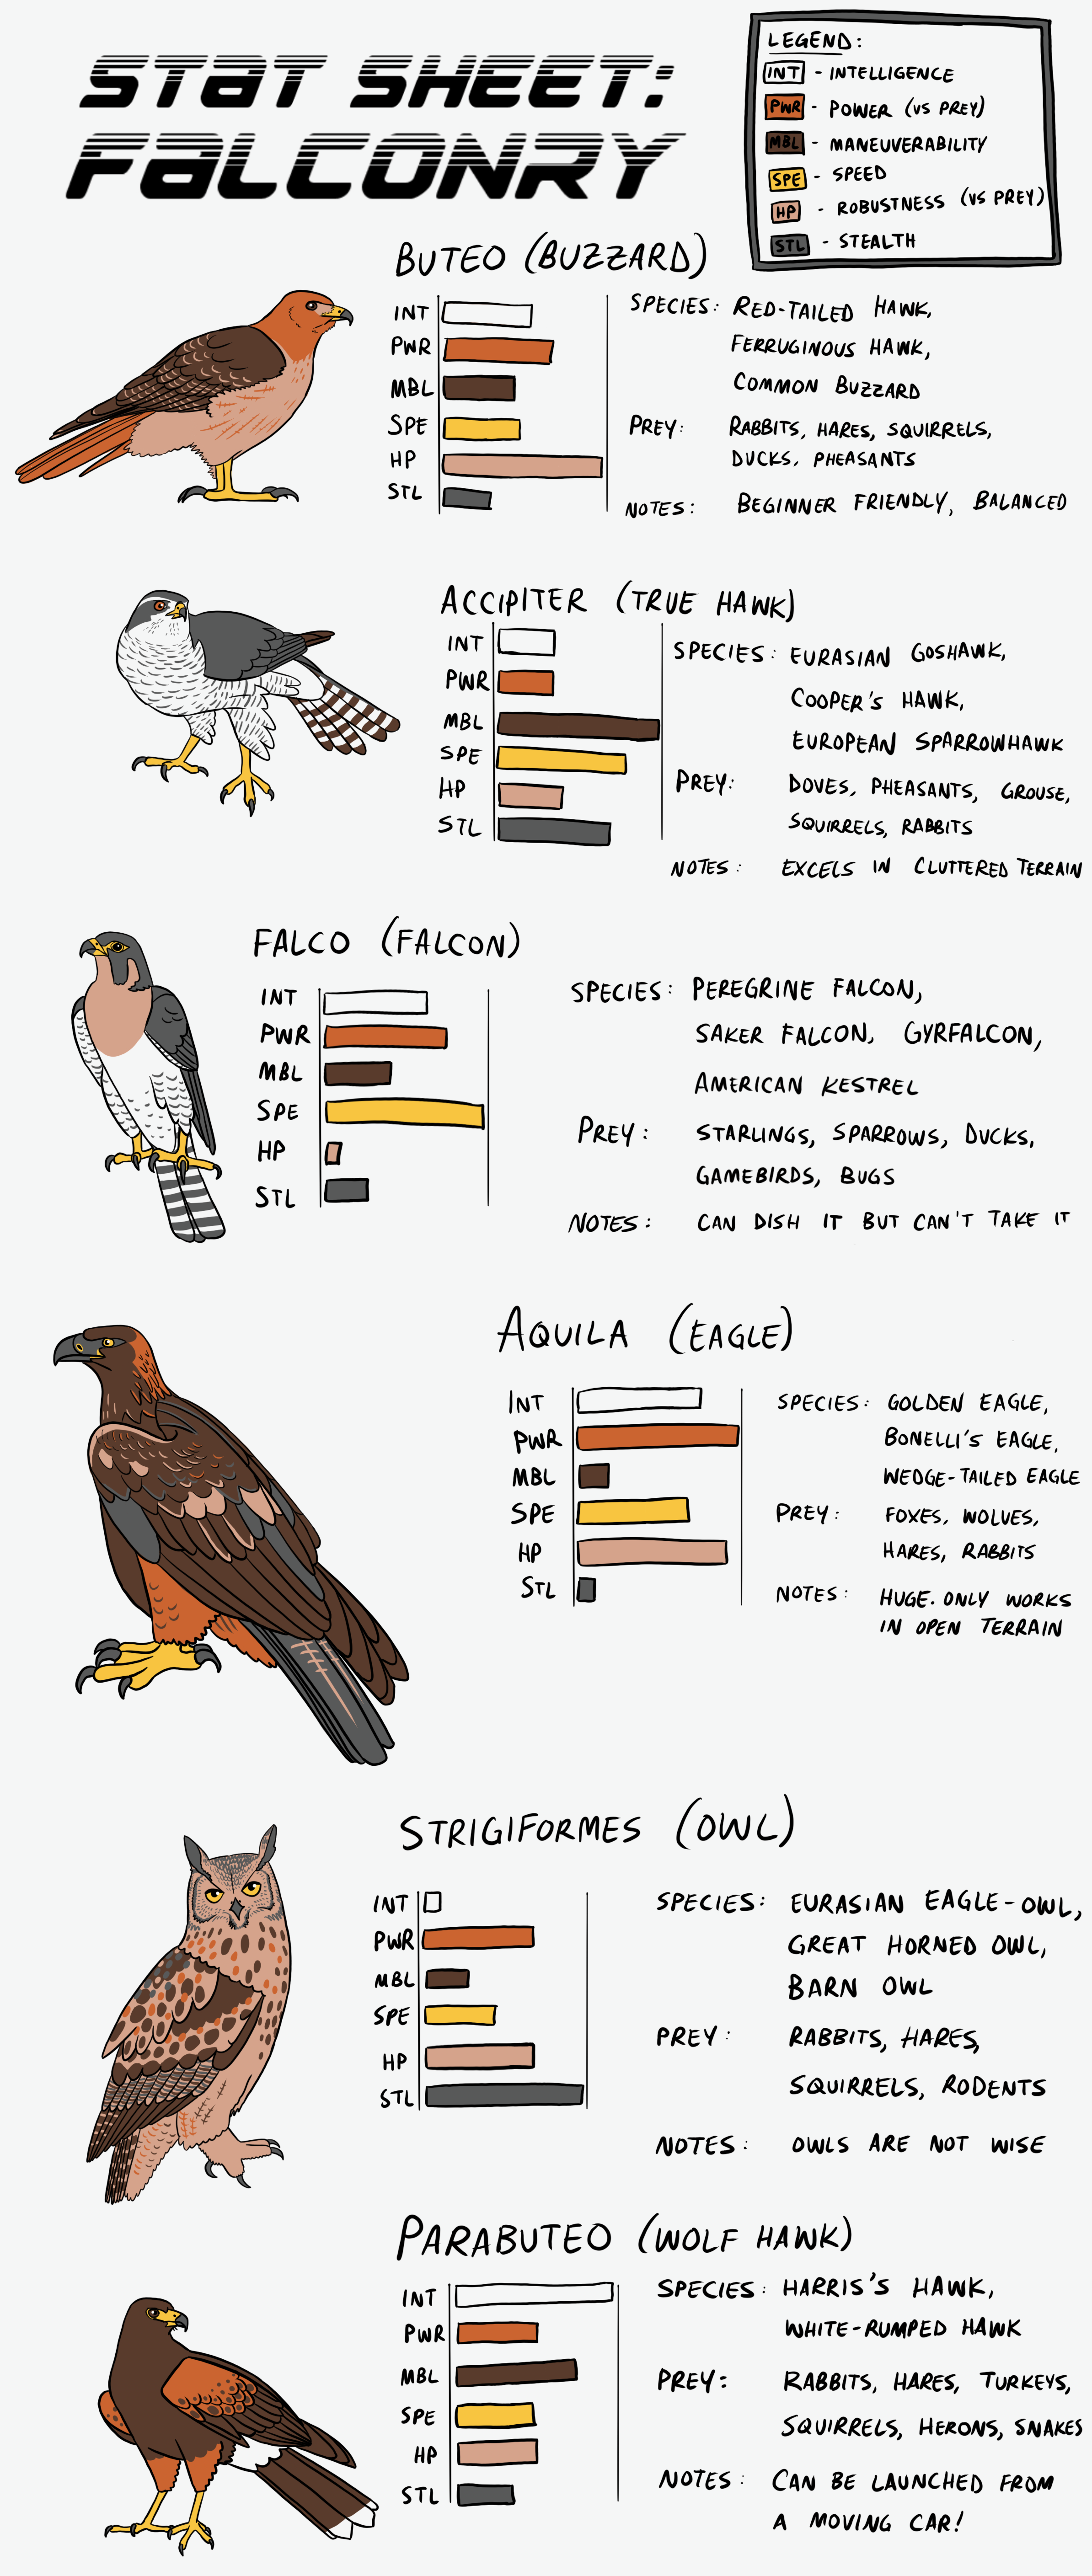 STAT SHEET:
FALCONRY
LEGEND:
INT - INTELLIGENCE
PWR - POWER (VS PREY)
MBL - MANEUVERABILITY
SPE - SPEED
HP - ROBUSTNESS (VS PREY)
STL - STEALTH
BUTEO (BUZZARD)
INT
PWR
MBL
SPE
HP
STL
SPECIES: RED-TAILED HAWK,
FERRUGINOUS HAWK,
COMMON BUZZARD
PREY: RABBITS, HARES, SQUIRRELS,
DUCKS, PHEASANTS
NOTES: BEGINNER FRIENDLY, BALANCED
ACCIPITER (TRUE HAWK)
INT
PWR
MBL
SPE
HP
STL
SPECIES: EURASIAN GOSHAWK,
COOPER'S HAWK,
EUROPEAN SPARROWHAWK
PREY: DOVES, PHEASANTS, GROUSE,
SQUIRRELS, RABBITS
NOTES: EXCELS IN CLUTTERED TERRAIN
FALCO (FALCON)
INT
PWR
MBL
SPE
HP
STL
SPECIES: PEREGRINE FALCON,
SAKER FALCON, GYRFALCON,
AMERICAN KESTREL
PREY: STARLINGS, SPARROWS, DUCKS,
GAMEBIRDS, BUGS
NOTES: CAN DISH IT BUT CAN'T TAKE IT
AQUILA (EAGLE)
INT
PWR
MBL
SPE
HP
STL
SPECIES: GOLDEN EAGLE,
BONELLI'S EAGLE,
WEDGE-TAILED EAGLE
PREY: FOXES, WOLVES,
HARES, RABBITS
NOTES: HUGE. ONLY WORKS
IN OPEN TERRAIN
STRIGIFORMES (OWL)
INT
PWR
MBL
SPE
HP
STL
SPECIES: EURASIAN EAGLE-OWL,
GREAT HORNED OWL,
BARN OWL
PREY: RABBITS, HARES,
SQUIRRELS, RODENTS
NOTES: OWLS ARE NOT WISE
PARABUTEO (WOLF HAWK)
INT
PWR
MBL
SPE
HP
STL
SPECIES: HARRIS'S HAWK,
WHITE-RUMPED HAWK
PREY: RABBITS, HARES, TURKEYS,
SQUIRRELS, HERONS, SNAKES
NOTES: CAN BE LAUNCHED FROM
A MOVING CAR!